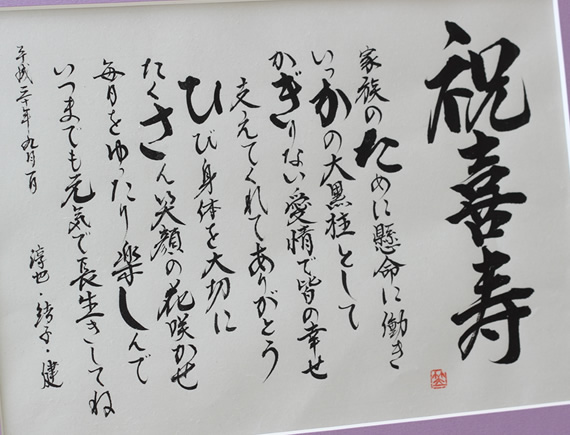 祝喜寿
家族のために懸命に働き
いっかの大黒柱として
かぎりない愛情で皆の幸せ
支えてくれてありがとう
ひび身体を大切に
たくさん笑顔の花咲かせ
毎日をゆったり楽しんで
いつまでも元気で長生きしてね
平成 九月
淳也・ ・健